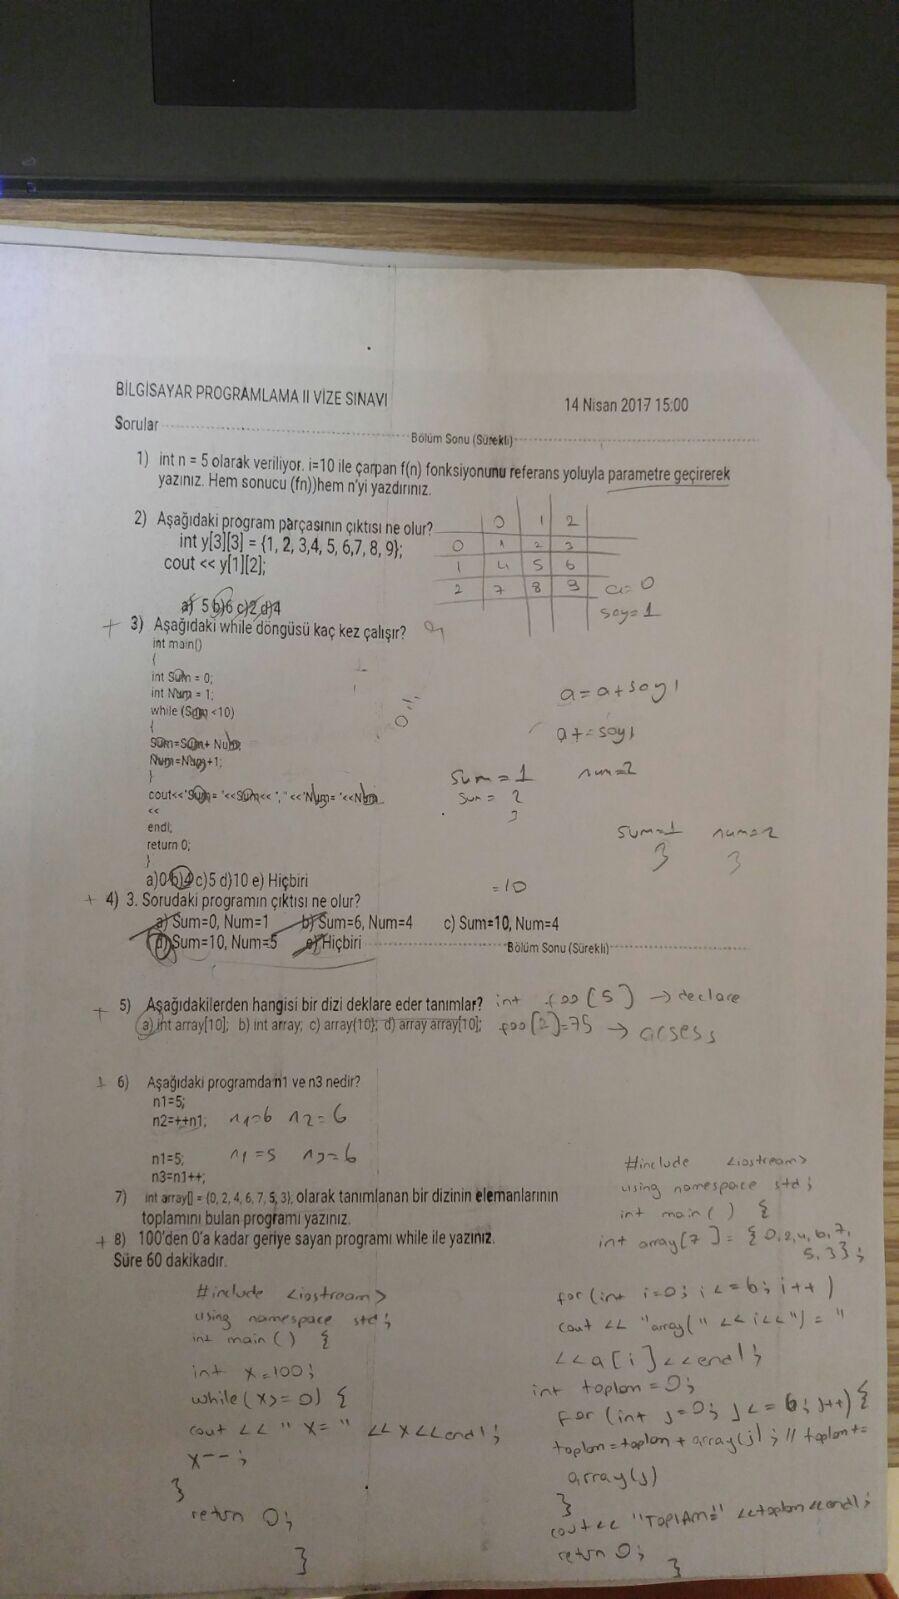 BİLGİSAYAR PROGRAMLAMA II VİZE SINAVI
14 Nisan 2017 15:00
Sorular
Bölüm Sonu (Sürekli)
1) int n = 5 olarak veriliyor. i=10 ile çarpan f(n) fonksiyonunu referans yoluyla parametre geçirerek
yazınız. Hem sonucu (fn))hem n'yi yazdırınız.
2) Aşağıdaki program parçasının çıktısı ne olur?
int y[3][3] = {1, 2, 3,4, 5, 6,7, 8, 9};
cout << y[1][2];
a) 5 b)6 c)2 d)4
0 1 2
0 1 2 3
1 4 5 6
2 7 8 9
a=0
say=1
+ 3) Aşağıdaki while döngüsü kaç kez çalışır?
int main()
{
int Sum = 0;
int Num = 1;
while (Sum <10)
{
Sum=Sum+ Num;
Num=Num+1;
}
cout<<"Sum= "<<Sum<< ", " <<"Num= "<<Num
<<
endl;
return 0;
}
a)0 b)4 c)5 d)10 e) Hiçbiri
a=a+say1
a+=say1
Sum=1 num=2
Sum= 2
3
sum=1 num=2
3 3
=10
+ 4) 3. Sorudaki programın çıktısı ne olur?
a) Sum=0, Num=1 b) Sum=6, Num=4 c) Sum=10, Num=4
d) Sum=10, Num=5 e) Hiçbiri
Bölüm Sonu (Sürekli)
+ 5) Aşağıdakilerden hangisi bir dizi deklare eder tanımlar?
a) int array[10]; b) int array; c) array{10}; d) array array[10];
int foo[5] → declare
foo[2]=75 → acsess
+ 6) Aşağıdaki programda n1 ve n3 nedir?
n1=5;
n2=++n1; n1=6 n2=6
n1=5; n1=5 n3=6
n3=n1++;
7) int array[] = {0, 2, 4, 6, 7, 5, 3}, olarak tanımlanan bir dizinin elemanlarının
toplamını bulan programı yazınız.
+ 8) 100'den 0'a kadar geriye sayan programı while ile yazınız.
Süre 60 dakikadır.
#include <iostream>
using namespace std;
int main() {
int x=100;
while(x>=0) {
cout << " x= " << x<<endl;
x--;
}
return 0;
}
#include <iostream>
using namespace std;
int main() {
int array[7]= {0,2,4,6,7,
5,3};
for(int i=0; i<=6; i++)
cout << "array(" <<i<<") = "
<<a[i]<<endl;
int toplam=0;
for (int j=0; j<=6; j++){
toplam=toplam + array(j); // toplam+=
array(j)
}
cout<< "TOPLAM=" <<toplam<<endl;
return 0;
}